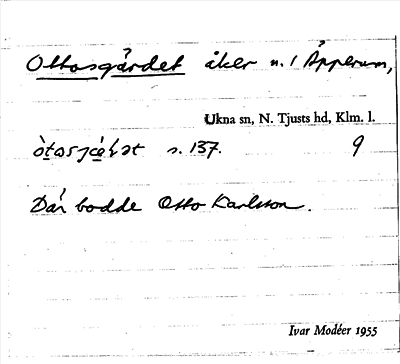 Ottosgärdet åker n. i Äpperum,
Ukna sn, N. Tjusts hd, Klm. l.
s. 137. 9
Där bodde Otto Karlsson.
Ivar Modéer 1955